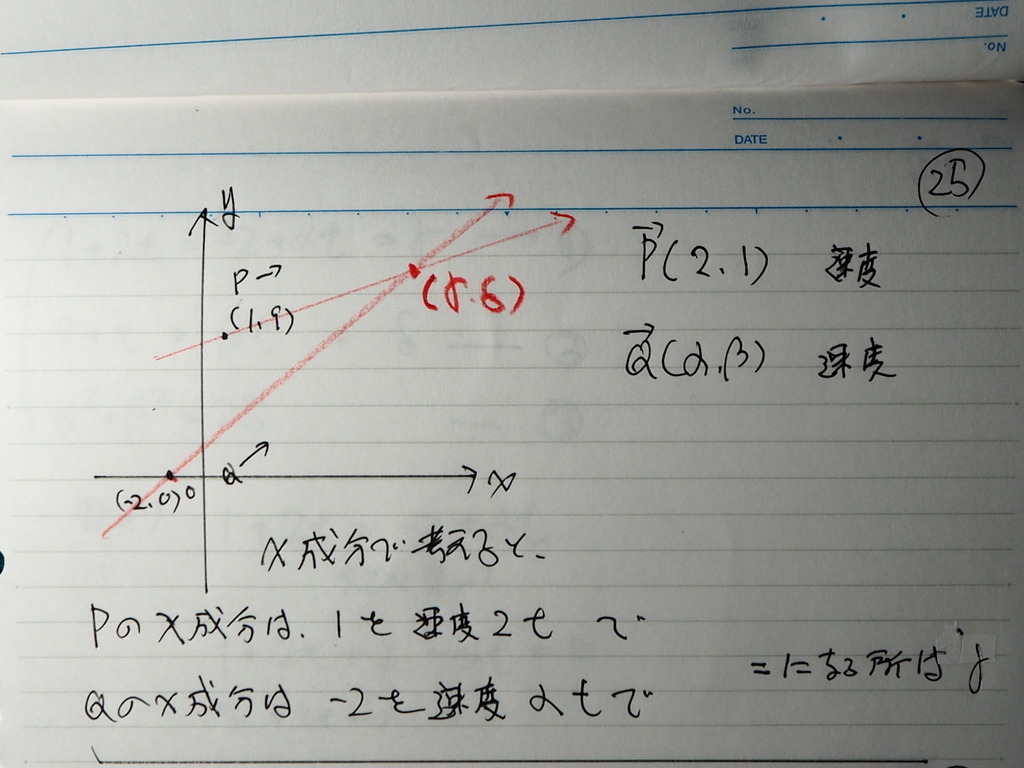 DATE
No.
No.
DATE
25
y
P→
(1,9)
(γ.δ)
P(2.1) 速度
Q(α.β) 速度
Q
(-2,0) 0
x
x成分で考えると、
Pのx成分は、1を速度2tで
=になる所はγ
Qのx成分は -2を速度αtで